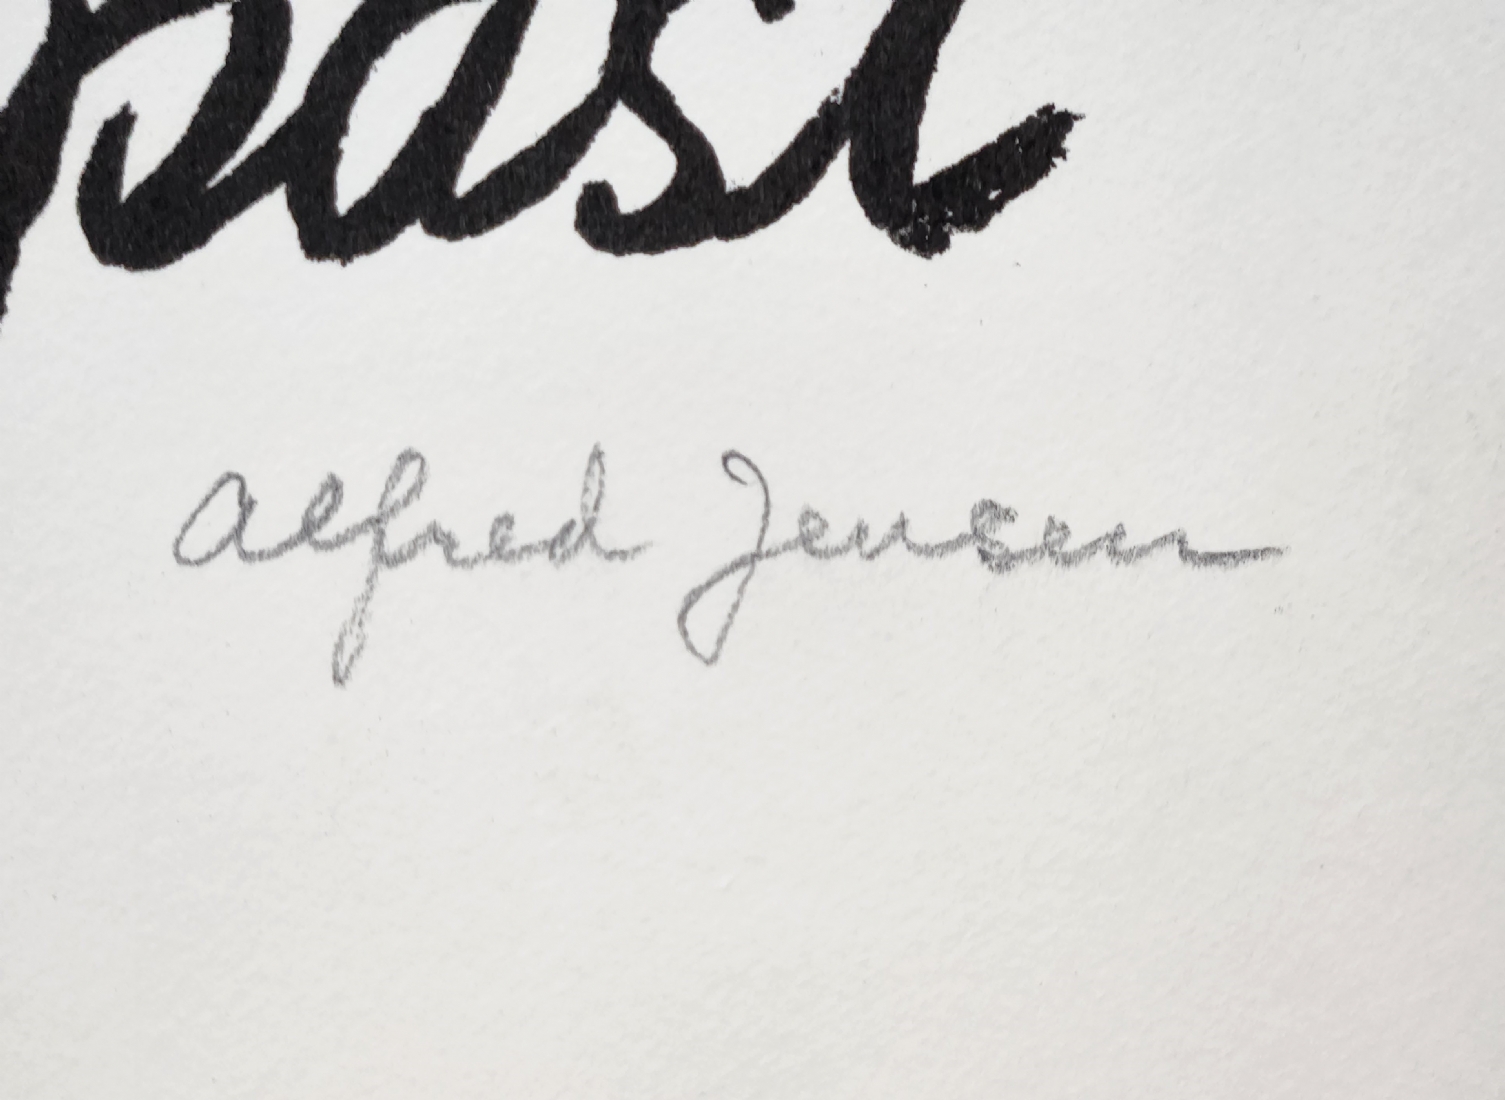 past
Alfred Jensen